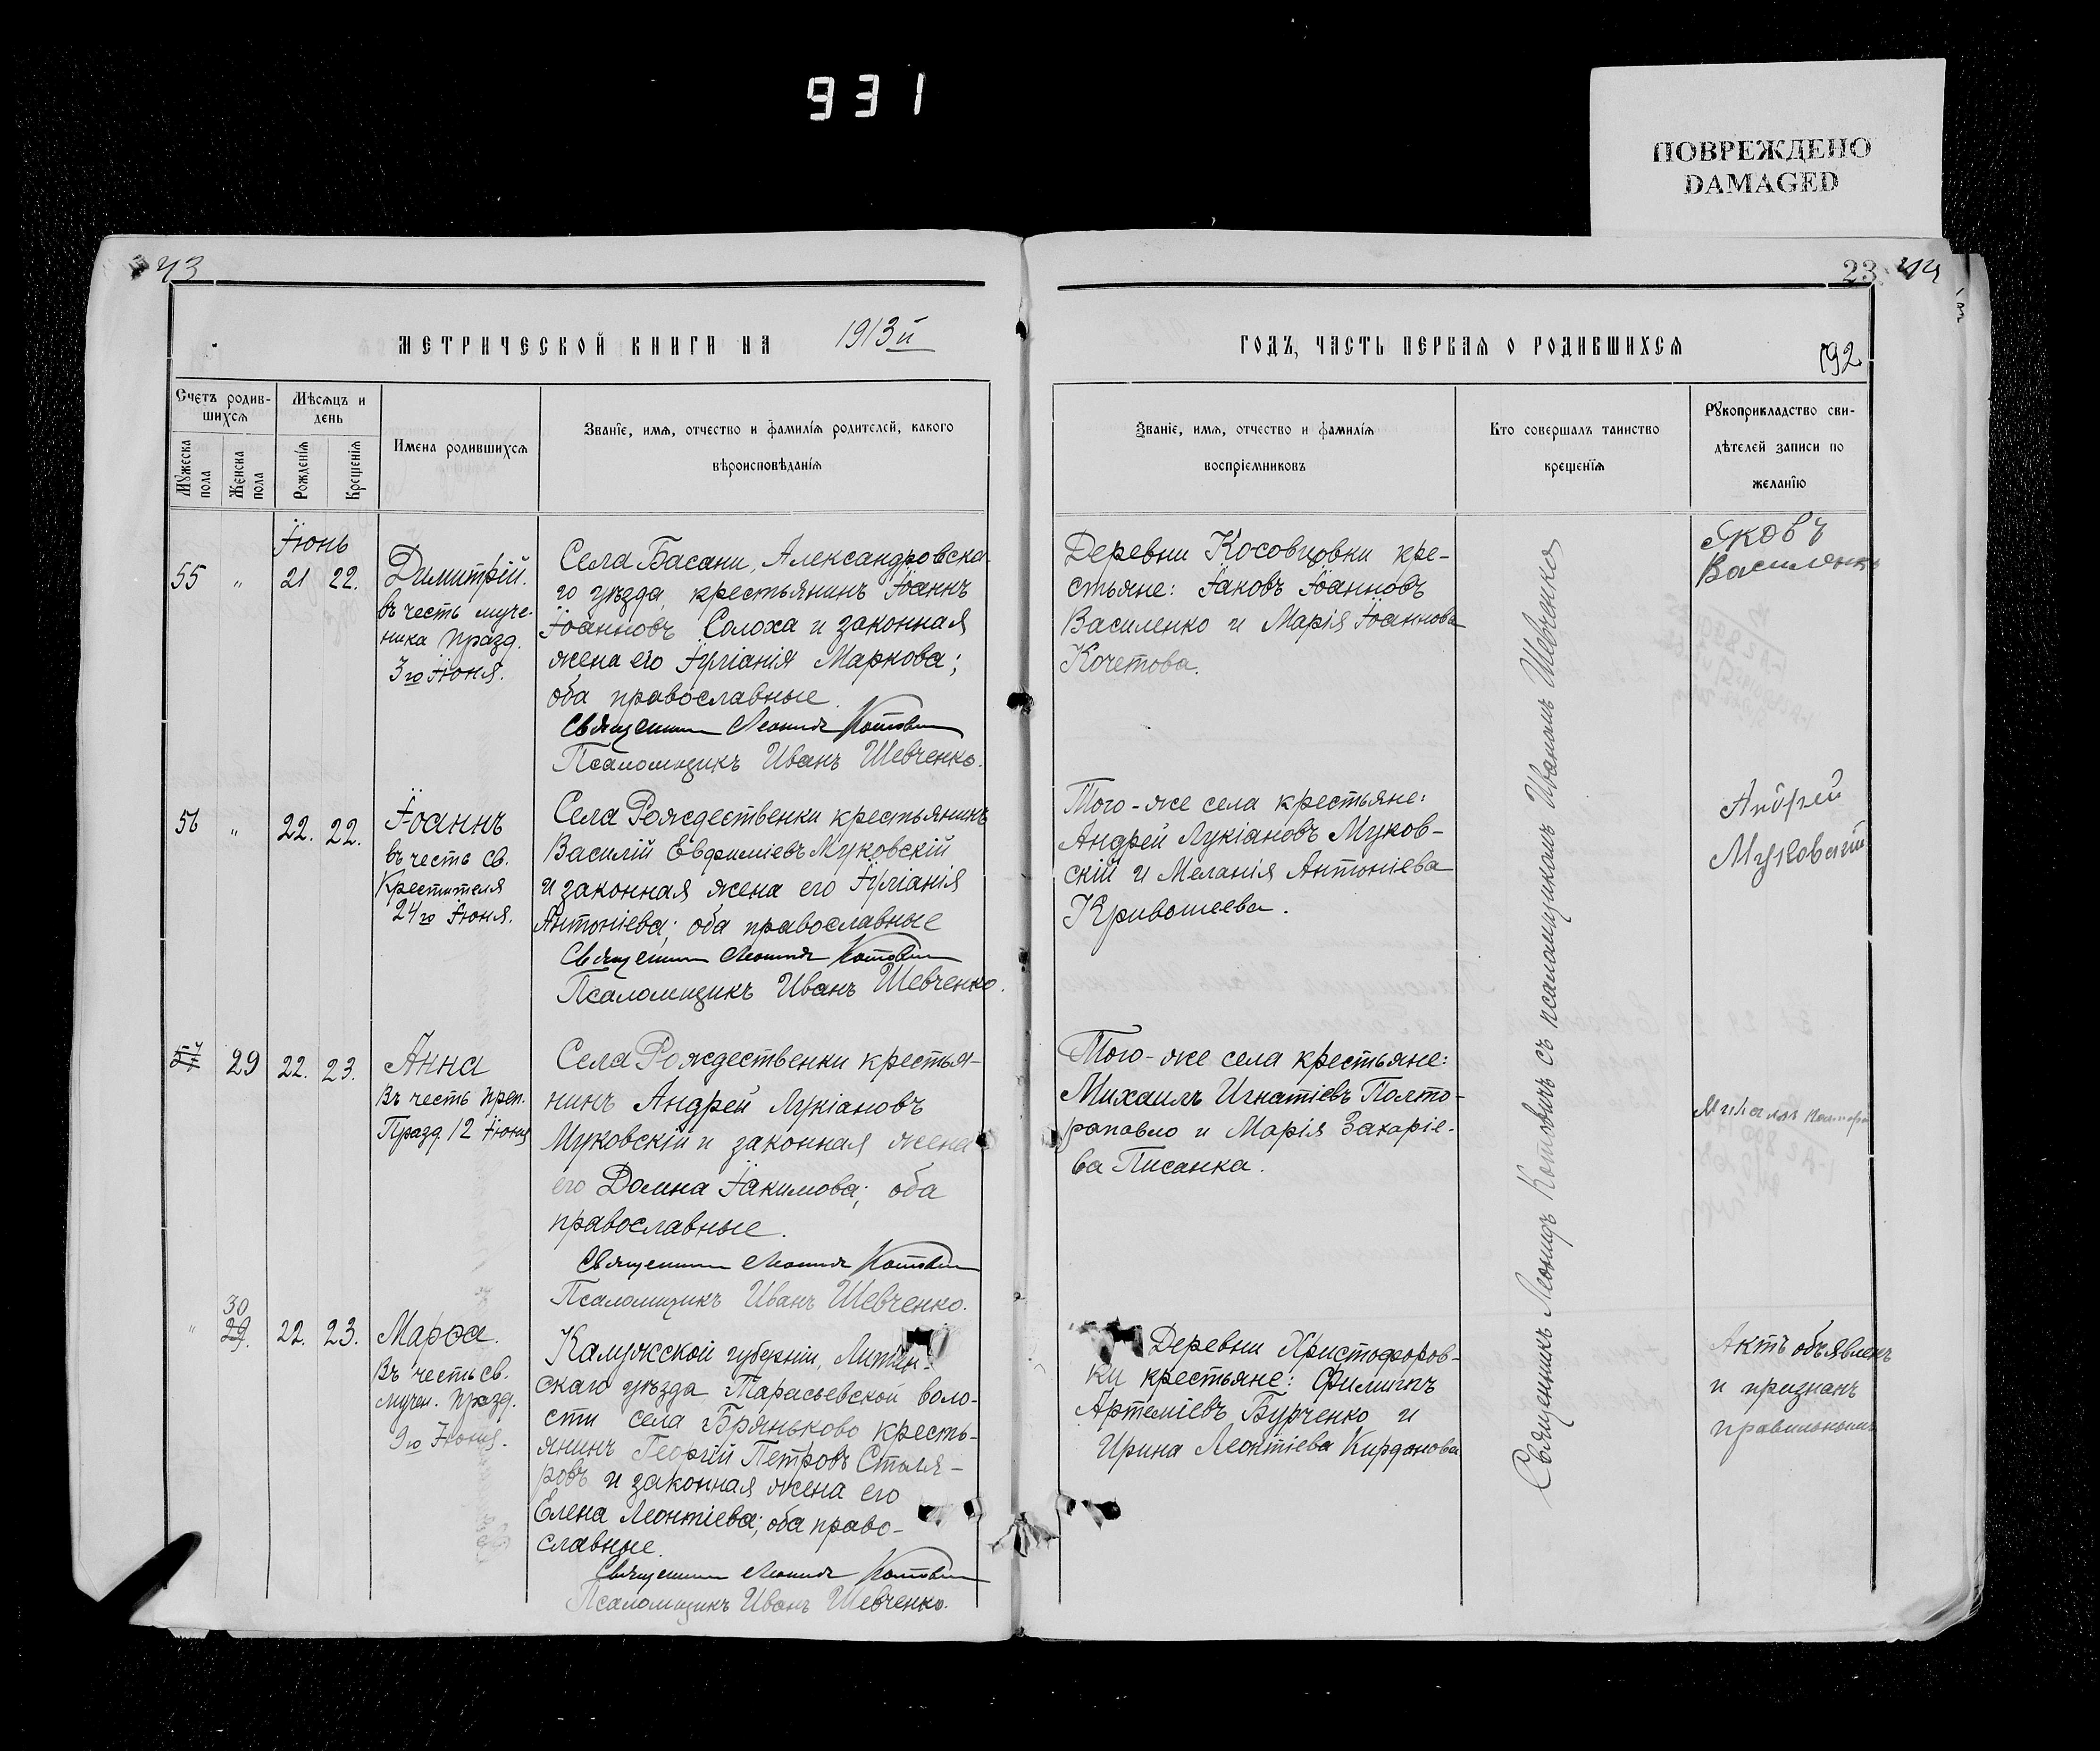 931
ПОВРЕЖДЕНО
DAMAGED
43
23
МЕТРИЧЕСКОЙ КНИГИ НА 1913й
ГОДЪ, ЧАСТЬ ПЕРВАЯ О РОДИВШИХСЯ
192
Счетъ родив-
шихся
Мужеска пола
Женска пола
Мѣсяцъ и
день
Рожденія
Крещенія
Имена родившихся
Званіе, имя, отчество и фамилія родителей, какого
вѣроисповѣданія
Званіе, имя, отчество и фамилія
воспріемниковъ
Кто совершалъ таинство
крещенія
Рукоприкладство сви-
дѣтелей записи по
желанію
Іюнь
55 " 21 22.
Димитрій.
въ честь муче-
ника празд.
3го Іюня.
Села Басани, Александровска-
го уѣзда, крестьянинъ Іоаннъ
Іоанновъ Солоха и законная
жена его Іуліанія Маркова;
оба православные.
Священникъ Леонидъ Котовичъ
Псаломщикъ Иванъ Шевченко.
Деревни Косовцовки кре-
стьяне: Іаковъ Іоанновъ
Василенко и Марія Іоаннова
Кочетова.
Яковъ
Василенко
56 " 22. 22.
Іоаннъ
въ честь св.
Крестителя
24го Іюня.
Села Рождественки крестьянинъ
Василій Евфиміевъ Муковскій
и законная жена его Іуліанія
Антоніева; оба православные
Священникъ Леонидъ Котовичъ
Псаломщикъ Иванъ Шевченко.
Того-же села крестьяне:
Андрей Лукіановъ Муков-
скій и Меланія Антоніева
Кривошеева.
Андрей
Муковский
57 29 22. 23.
Анна
Въ честь преп.
Празд. 12 Іюня
Села Рождественки крестья-
нинъ Андрей Лукіановъ
Муковскій и законная жена
его Домна Іакимова; оба
православные.
Священникъ Леонидъ Котовичъ
Псаломщикъ Иванъ Шевченко.
Того-же села крестьяне:
Михаилъ Игнатіевъ Полто-
рапавло и Марія Захаріе-
ва Писанка.
30
" 29. 22. 23.
Марѳа.
Въ честь св.
мучен. празд.
9го Іюня.
Калужской губерніи,
скаго уѣзда, Тарасьевской воло-
сти села Бряньково кресть-
янинъ Георгій Петровъ Столя-
ровъ и законная жена его
Елена Леонтіева; оба право-
славные.
Священникъ Леонидъ Котовичъ
Псаломщикъ Иванъ Шевченко.
Деревни Христофоров-
ки крестьяне: Филиппъ
Артеміевъ Бурченко и
Ирина Леонтіева Кирданова
Актъ объявленъ
и признанъ
правильнымъ
Священникъ Леонидъ Котовичъ съ псаломщикомъ Иваномъ Шевченко